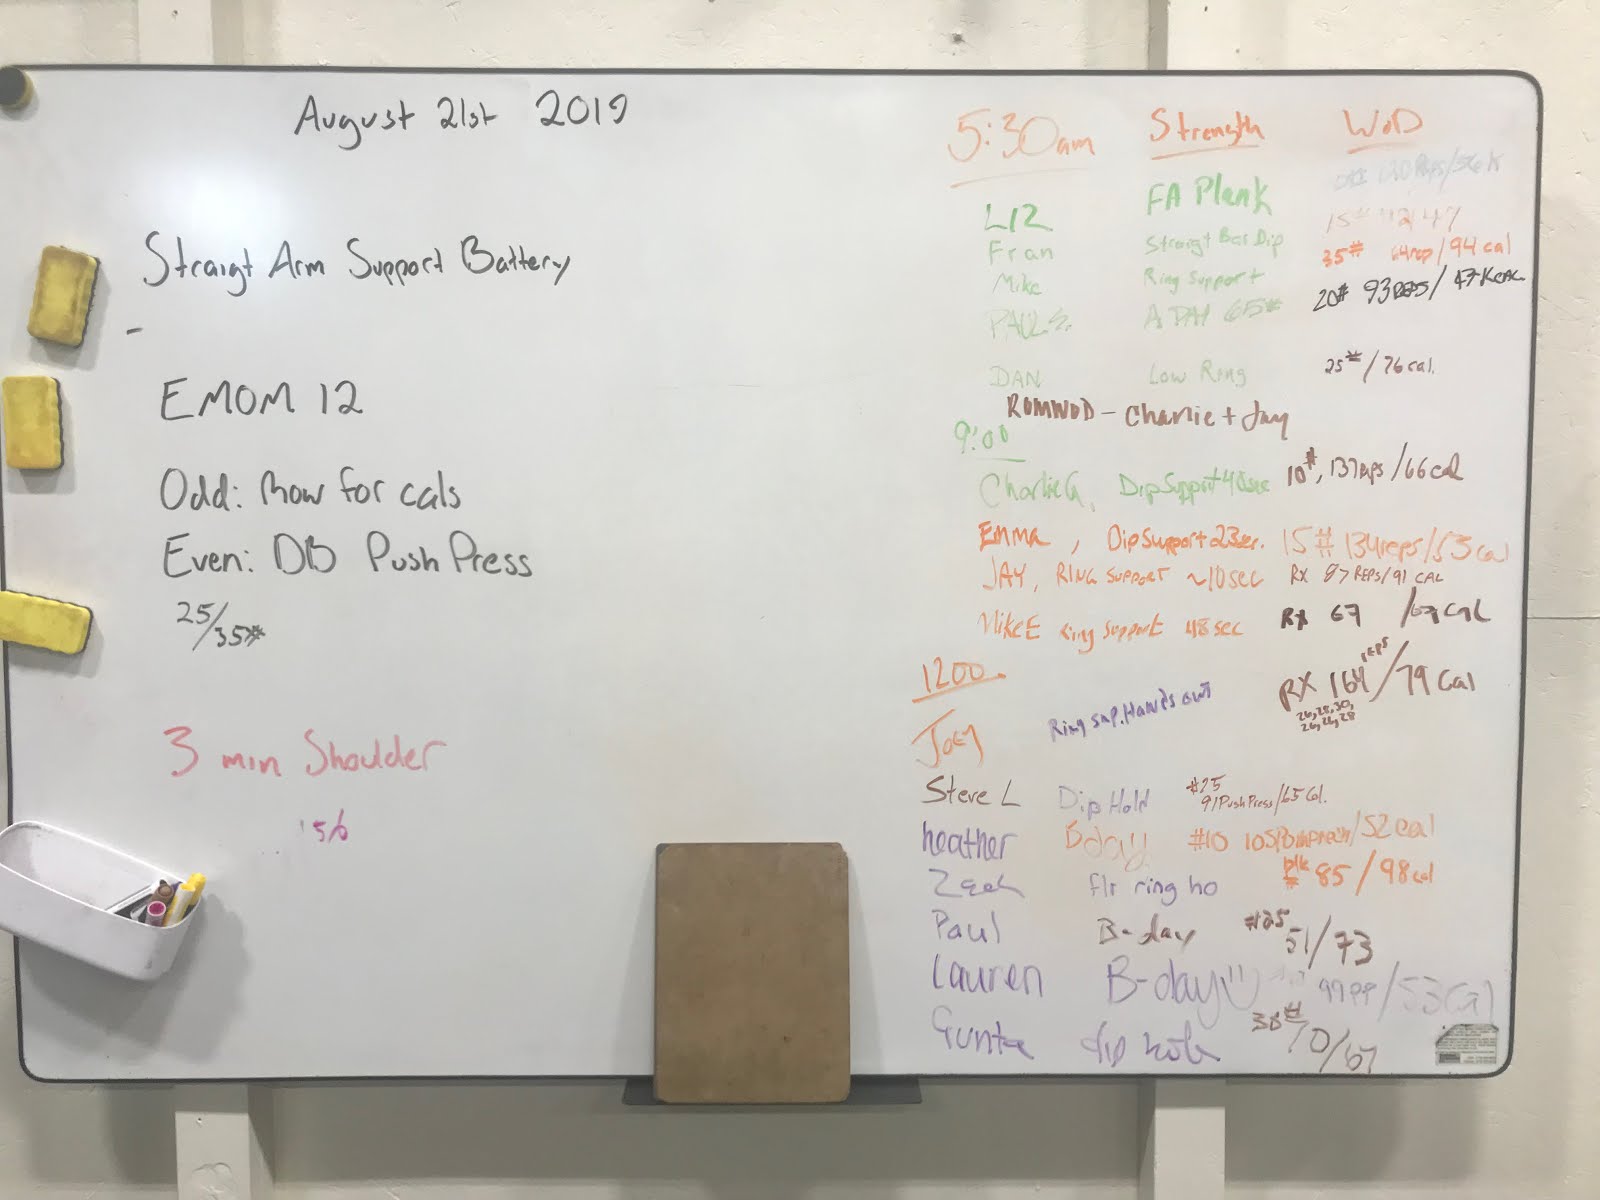 August 21st 2019
Straigt Arm Support Battery
-
EMOM 12
Odd: Row for cals
Even: DB Push Press
25/35#
3 min Shoulder
5:30am Strength WoD
LIZ FA Plank
Fran Straigt Bar Dip 15#
Mike Ring Support 35# 64rep/94 cal
PAUL S. A DAY 65# 20# 93 REPS/47 Kcal
DAN Low Ring 25#/76 cal.
ROMWOD - Charlie + Jay
9:00
Charlie G. Dip Support 48sec 10#, 137reps/66 cal
Emma, Dip Support 23sec. 15# 134reps/53 cal
JAY, RING SUPPORT ~10sec RX 87 REPS/91 CAL
Mike E Ring Support 48sec RX 67 /67 cal
1200
Joey Ring sup. Hands out RX 164 reps/79 cal
26,28,30,
26,26,28
Steve L Dip Hold #25
91 Push Press/65 Cal.
heather B day #10 105 /52 cal
Zach flr ring ho blk # 85/98 cal
Paul B-day 51/73
Lauren B-day 99 PP/53 Cal
Gunta dip 70/67